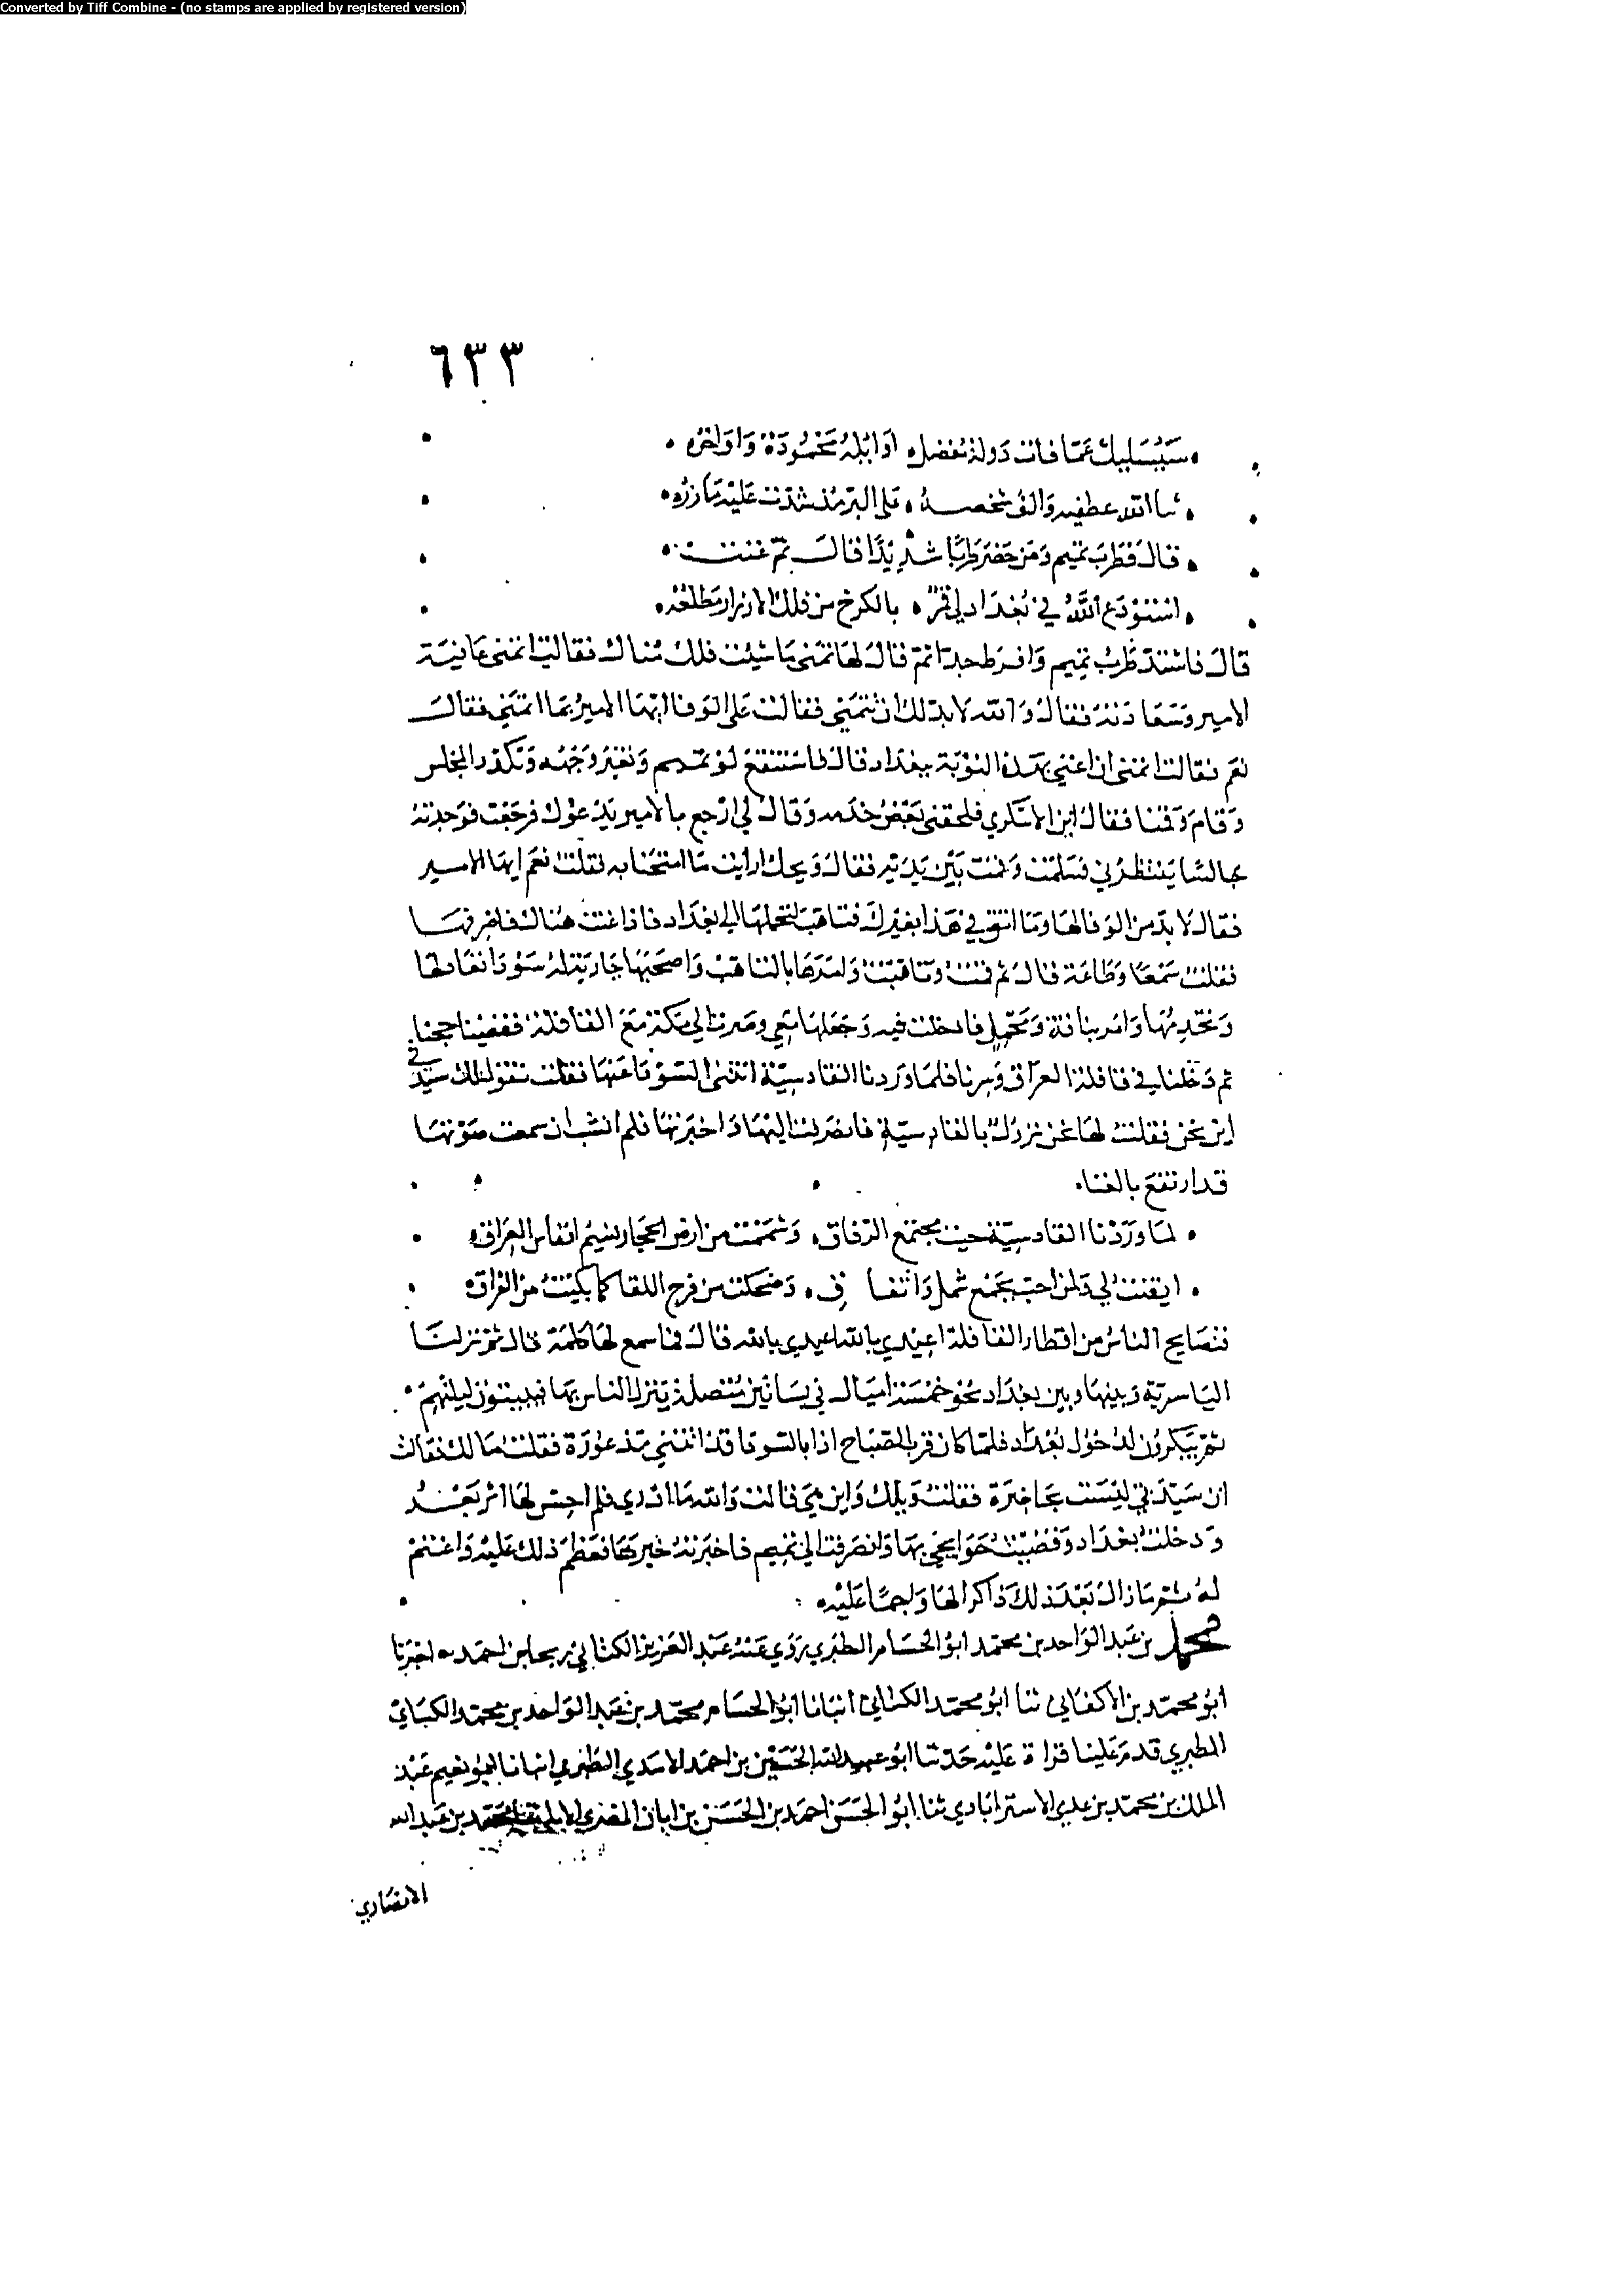 Converted by Tiff Combine - (no stamps are applied by registered version)
٦٣٣
سيسليك عما فات دولة مفضل اوائله محمودة واواخره
ثنا الله عطفيه والف شخصه على البر مذ شدت عليه مآزره
قال فطرب تميم ومن حضر طربا شديدا قال ثم غنت
استودع الله في بغداد لي قمرا بالكرخ من فلك الازرار مطلعه
قال فاشتد طرب تميم وافرط جدا ثم قال لها تمني ما شئت فلك مناك فقالت اتمنى عافية
الامير وسعادته فقال والله لا بد لك ان تتمني فقالت على الوفا ايها الامير بما اتمنى فقال
نعم فقالت اتمنى ان اغني بهذه النوبة ببغداد قال فاستنقع لون تميم وتغير وجهه وتكدر المجلس
وقام وقمنا فقال ابن الاشكري فلحقني بعض خدمه وقال لي ارجع فالامير يدعوك فرجعت فوجدته
جالسا ينتظرني فسلمت وقمت بين يديه فقال ويحك ارايت ما امتحنا به فقلت نعم ايها الامير
فقال لا بد من الوفا لها وما اثق في هذا بغيرك فتاهب لتحملها الى بغداد فاذا غنت هناك فاصرفها
فقلت سمعا وطاعة قال ثم قمت وتاهبت وامرها بالتاهب واصحبها جارية له سودا تعادلها
وتخدمها وامر بناقة ومحمل فادخلت فيه وجعلها معي وصرت الى مكة مع القافلة فقضينا حجنا
ثم دخلنا في قافلة العراق وسرنا فلما وردنا القادسية اتتني السودا عنها فقالت تقول لك سيدتي
اين نحن فقلت لها نحن نزول بالقادسية فانصرفت اليها واخبرتها فلم انشب ان سمعت صوتها
قد ارتفع بالغنا
لما وردنا القادسية حيث مجتمع الرفاق وشممت من ارض الحجاز نسيم انفاس العراق
ايقنت لي ولمن احب بجمع شمل واتفاق وضحكت من فرح اللقا كما بكيت من الفراق
فتصايح الناس من اقطار القافلة اعيدي بالله اعيدي بالله قال فما سمع لها كلمة قال ثم نزلنا
الياسرية وبينها وبين بغداد نحو خمسة اميال في بساتين متصلة ينزل الناس بها فيبيتون ليلتهم
ثم يبكرون لدخول بغداد فلما كان قرب الصباح اذا بالسودا قد اتتني مذعورة فقلت ما لك فقالت
ان سيدتي ليست بحاضرة فقلت ويلك واين هي قالت والله ما ادري فلم احس لها اثر بعد
ودخلت بغداد وقضيت حوايجي بها وانصرفت الى تميم فاخبرته خبرها فعظم ذلك عليه واغتم
له ثم ما زال بعد ذلك ذاكرا لها واجما عليه
محمد بن عبد الواحد بن محمد ابو الحسام الطبري روى عنه عبد العزيز الكتاني اخبرنا
ابو محمد بن الاكفاني ثنا ابو محمد الكتاني انبانا ابو الحسام محمد بن عبد الواحد بن محمد
الطبري قدم علينا قراة عليه حدثنا ابو عبد الله الحسين بن احمد الاسدي الطبري انبانا ابو نعيم عبد
الملك بن محمد بن عدي الاستراباذي ثنا ابو الحسن احمد بن الحسن بن ابان المضري الابلي محمد بن عبد الله
الانصاري